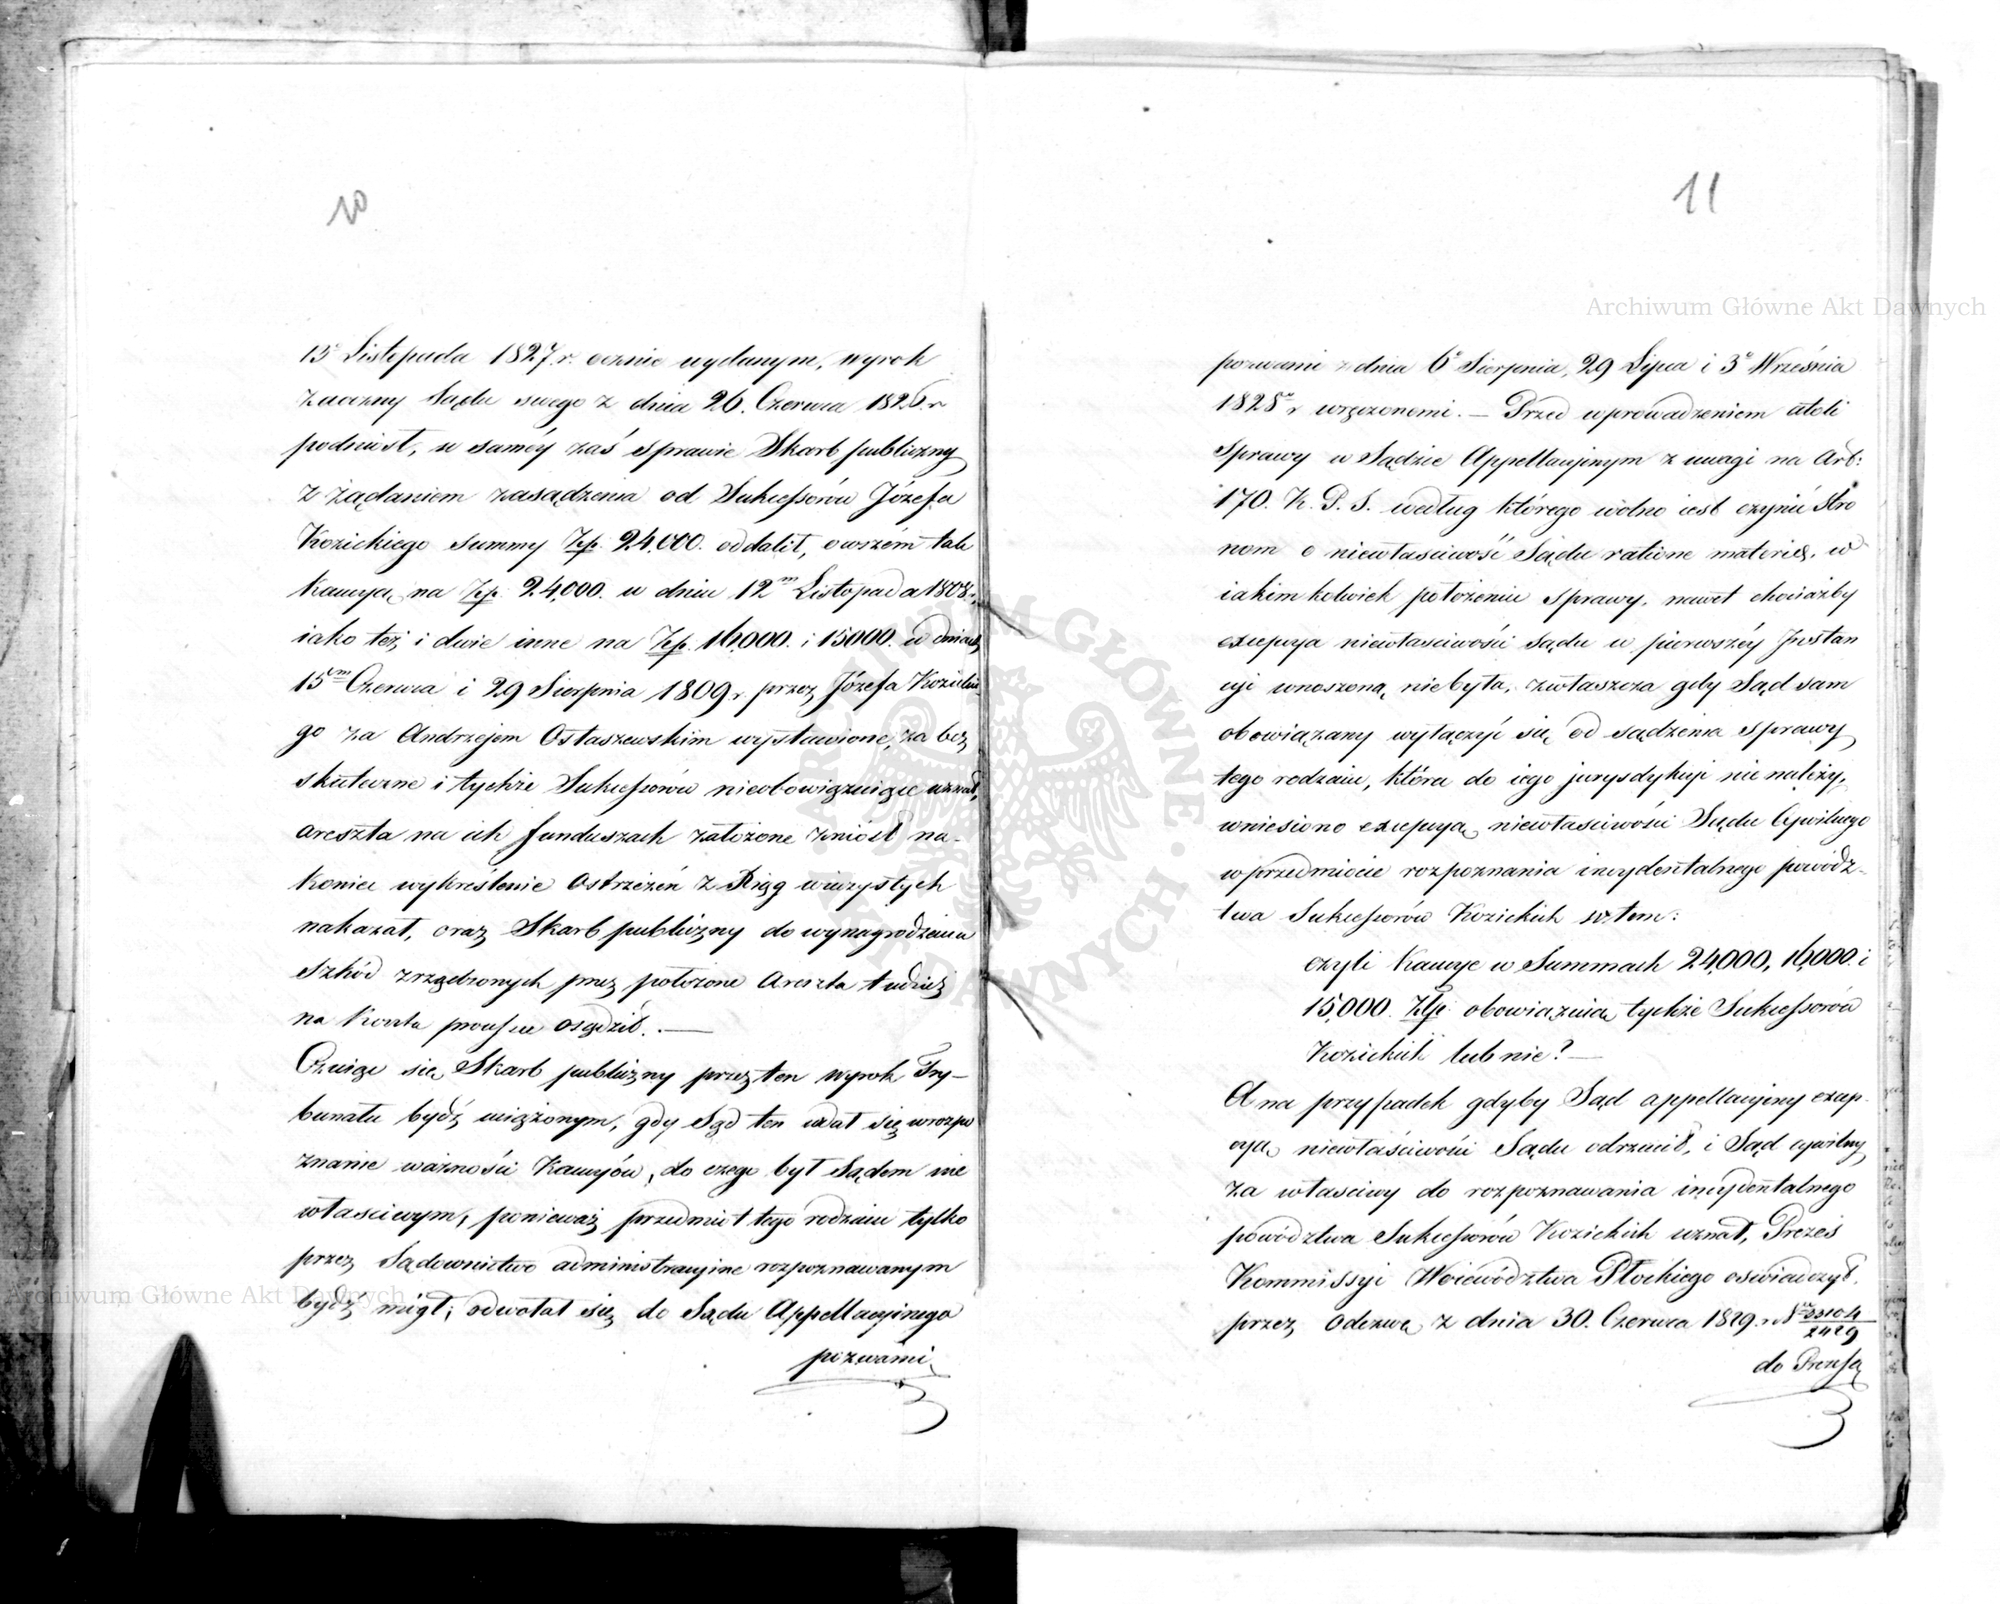 10
15 Listopada 1827 r. ocznie wydanym, wyrok
zaoczny Sądu swego z dnia 26. Czerwca 1826. r
podniósł, w saméy zaś sprawie Skarb publiczny
z żądaniem zasądzenia od Sukcessorów Józefa
Kozickiego summy Złp. 24,000. oddalił, owszem tak
kaucyą na Złp. 24,000. w dniu 12m Listopada 1808 r.,
iako też i dwie inne na Złp. 16,000. i 15000. w dniach
15m Czerwca i 29 Sierpnia 1809 r. przez Józefa Kozickie-
go za Andrzejem Ostaszewskim wystawione, za bez
skuteczne i tychże Sukcessorów nieobowiązuiące uznał,
areszta na ich funduszach założone zniósł na-
koniec wykréslenie Ostrzeżeń z Xiąg wieczystych
nakazał, oraz Skarb publiczny do wynagrodzenia
szkód zrządzonych przez położone Areszta tudzież
na koszta processu osądził. —
Czuiąc się Skarb publiczny przez ten wyrok Try-
bunału bydź uciążonym, gdy Sąd ten wdał się w rozpo
znanie ważności Kaucyów, do czego był Sądem nie
właściwym, ponieważ przedmiot tego rodzaiu tylko
przez Sądownictwo administracyine rozpoznawanym
bydź mógł; odwołał się do Sądu Appellacyinego
pozwami
11
pozwami z dnia 6o Sierpnia, 29 Lipca i 3o Września
1828 r wręczonemi. — Przed wprowadzeniem atoli
Sprawy w Sądzie Appellacyinym z uwagi na Art:
170. K. P. S. według którego wolno iest czynić Stro
nom o niewłaściwość Sądu ratione materiæ, w
iakimkolwiek położeniu sprawy, nawet chociażby
excepcya niewłaściwości Sądu w pierwszéy Instan
cyi wnoszoną niebyła, zwłaszcza gdy Sąd sam
obowiązany wyłączyć się od sądzenia sprawy
tego rodzaiu, która do iego jurysdykcyi nie należy,
wniesiono excepcyą niewłaściwości Sądu Cywilnego
w przedmiocie rozpoznania incydentalnego powódz-
twa Sukcessorów Kozickich w tem:
czyli Kaucye w Summach 24,000, 16,000. i
15,000. Złp. obowiązuią tychże Sukcessorów
Kozickich lub nie? —
A na przypadek gdyby Sąd appellacyiny excep-
cyą niewłaściwości Sądu odrzucił, i Sąd cywilny
za właściwy do rozpoznawania incydentalnego
powództwa Sukcessorów Kozickich uznał, Prezes
Kommissyi Woiewództwa Płockiego oświadczył,
przez Odezwę z dnia 30. Czerwca 1829. r. N 33104/2429
do Prezesa
Archiwum Główne Akt Dawnych
Archiwum Główne Akt Dawnych
ARCHIWUM GŁÓWNE · AKT DAWNYCH ·